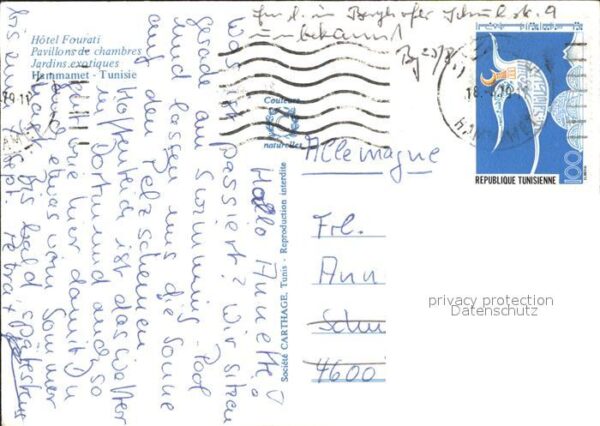 Hôtel Fourati
Pavillons de chambres
Jardins exotiques
Hammamet - Tunisie
Couleurs
naturelles
Société CARTHAGE, Tunis - Reproduction interdite
unbekannt
18
79
REPUBLIQUE TUNISIENNE
100
Allemagne
Frl.
Ann
Schu
4600
privacy protection
Datenschutz
Hallo Annette!
Was ist passiert? Wir sitzen
gerade am Swimming-Pool
und lassen uns die Sonne
auf den Pelz scheinen.
Hoffentlich ist das Wetter
in Dortmund auch so
wie hier damit Du
etwas vom Sommer
hast. Bis bald spätestens
7. Sept. Petra +